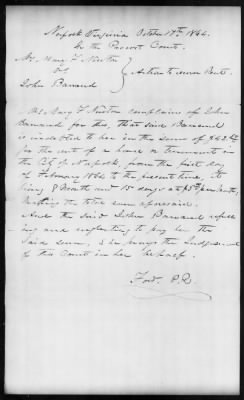 Norfolk Virginia October 17th 1864.
In the Provost Court.
Mrs. Mary F Newton
vs
John Barnard
Action to recover Rent.
Mrs. Mary F. Newton complains of John
Barnard for this, that said Barnard
is indebted to her in the sum of
for the rent of a house or tenement in
the City of Norfolk, from the first day
of February 1864 to the present time, It
being 8 Months and 15 days at
making the total sum aforesaid.
And the said John Barnard refus
ing and neglecting to pay her the
said sum, she prays the Judgement
of this Court in her behalf.